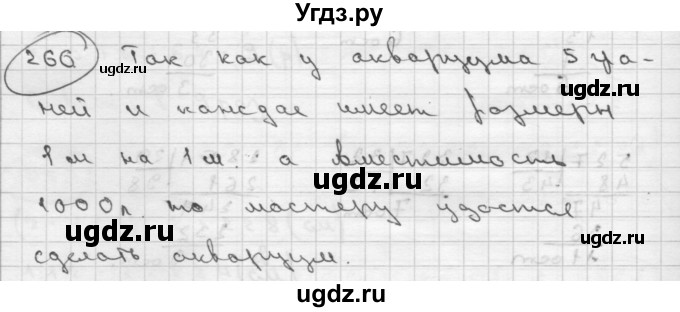 Угдз.ру
266 Так как у аквариума 5 гра-
ней и каждая имеет размеры
1 м на 1 м, а вместимость
1000 л, то мастеру удастся
сделать аквариум.
ugdz.ru
ugdz.ru
ugdz.ru
ugdz.ru
ugdz.ru
ugdz.ru
ugdz.ru
ugdz.ru